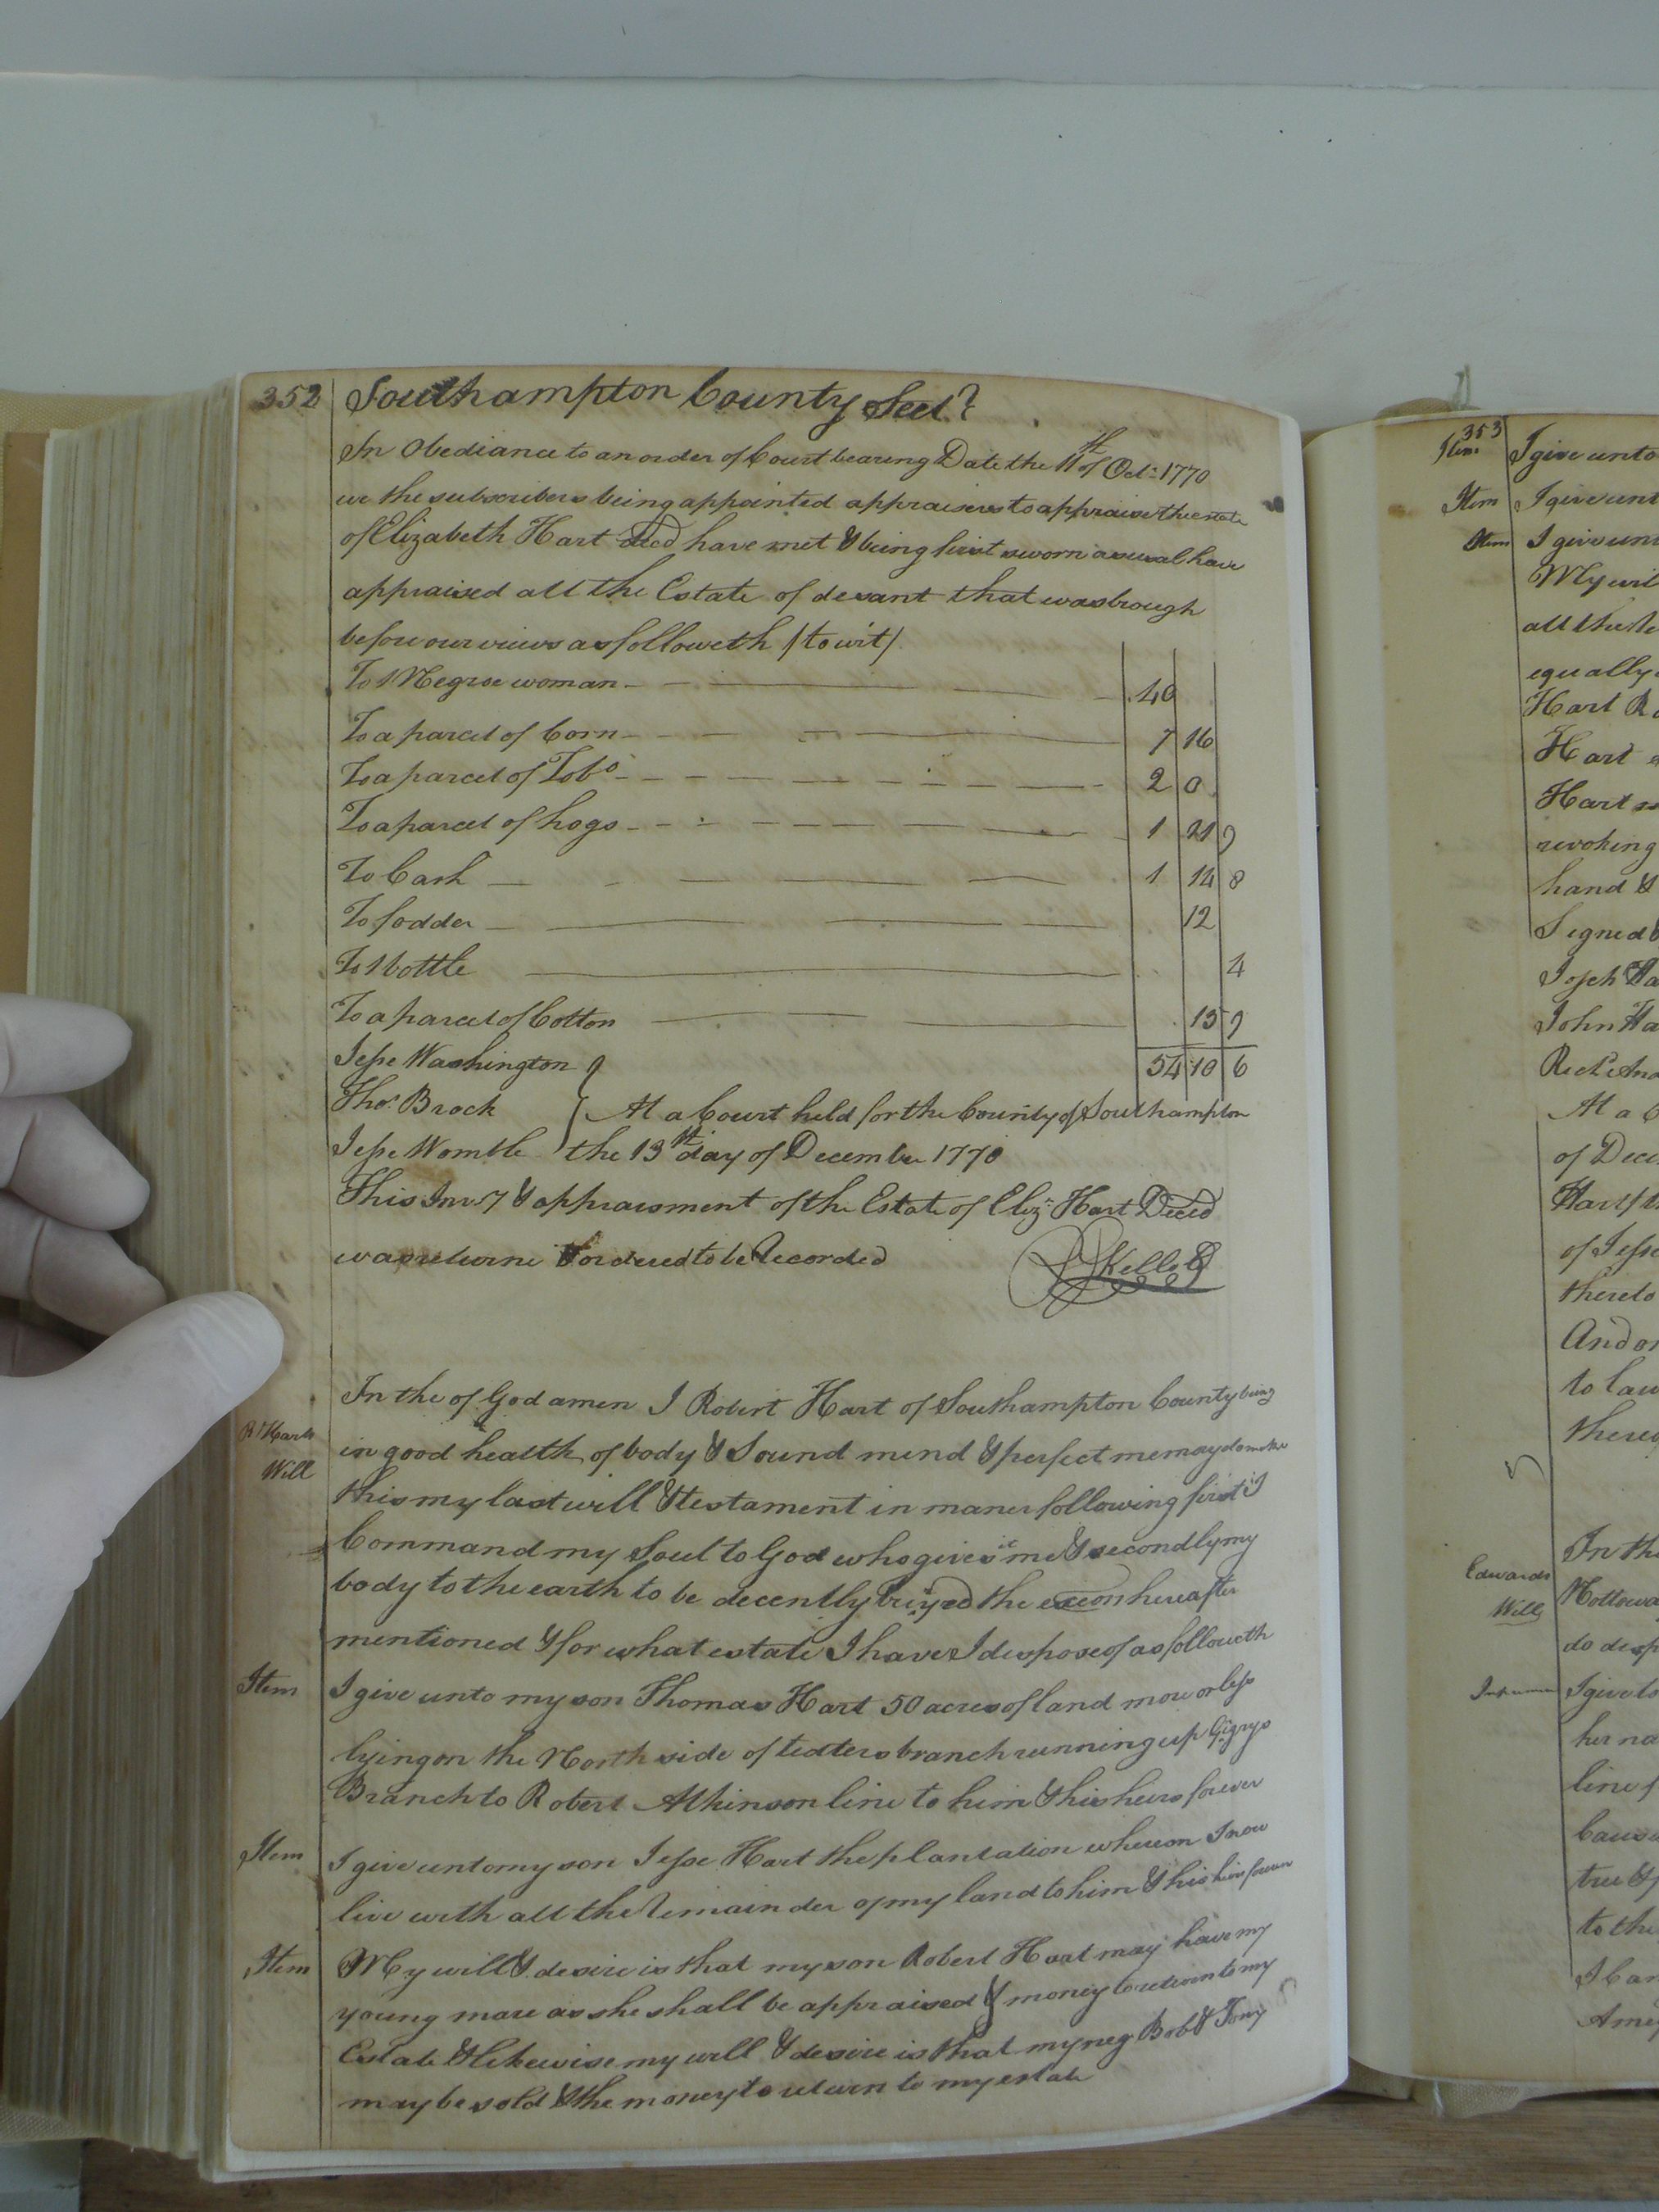 352 Southampton County Sect
In Obediance to an order of Court bearing Date the 11th of Oct: 1770
we the subscribers being appointed appraisers to appraise the estate
of Elizabeth Hart Decd have met & being first sworn as usual have
appraised all the Estate of desant that was brough
before our views as followeth / to wit /
To 1 Negroe woman 40
To a parcel of Corn 7 16
To a parcel of Tobo 2 0
To a parcel of hogs 1 9
To Cash 1 14 8
To fodder 12
To 1 bottle 4
To a parcel of Cotton 15 9
Jesse Washington 54 10 6
Thos. Brock At a Court held for the County of Southampton
Jesse Womble the 13th day of December 1770
This Inv7 & appraisment of the Estate of Eliz: Hart Decd
was returne & ordered to be Recorded Kello
In the of God amen I Robert Hart of Southampton County being
Rt Harts
Will
in good health of body & Sound mind & perfect memay do make
this my last will & testament in maner following first I
Command my Soul to God who gives it me & secondly my
body to the earth to be decently the hereafter
mentioned & for what estate I have I dispose of as followeth
Item I give unto my son Thomas Hart 50 acres of land more or less
lying on the North side of branch running up
Branch to Robert Atkinson line to him & his heirs forever
Item I give unto my son Jesse Hart the plantation whereon I now
live with all the Remainder of my land to him & his heirs forever
Item My will & desire is that my son Robert Hart may have my
young mare as she shall be appraised & money to return to my
Estate & likewise my will & desire is that my neg. Bob & Tony
may be sold & the money to return to my estate
353
Item I give unto
Item I give unt
Item I give unt
My wil
all the
equally
Hart
Hart
Hart
revoking
hand &
Signed &
Joseph Ha
John Ha
At a C
of Dece
Hart
of Jesse
thereto
And or
to law
there
In the
Edwards
Will
Nottowa
do disp
I give to
her na
line
Caus
tree &
to the